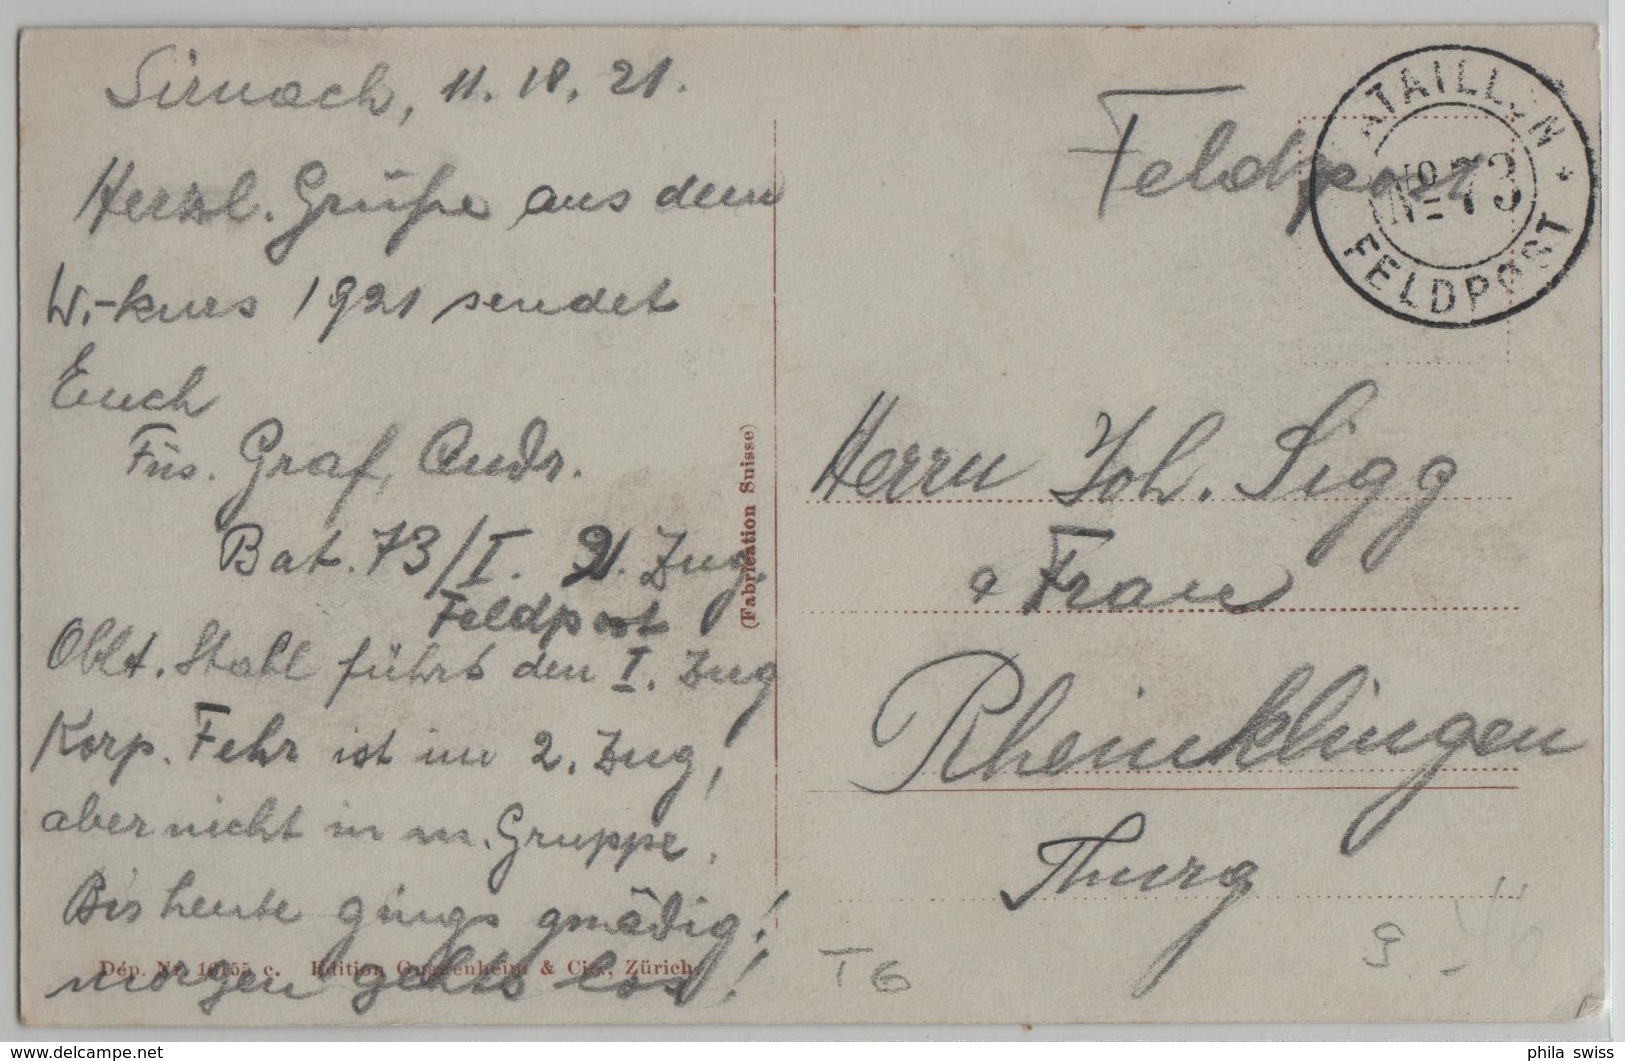 Sirnach, 11. 10. 21.
Herzl. Grüße aus dem
W.-kurs 1921 sendet
Euch
Füs. Graf, Andr.
Bat. 73/I. 2. Zug.
Feldpost
Oblt. Stahl führt den I. Zug
Korp. Fehr ist im 2. Zug,
aber nicht in m. Gruppe.
Bis heute gings gnädig!
morgen gehts los!
Dép. Nr. 16155 c. Edition Guggenheim & Cie., Zürich.
(Fabrication Suisse)
Feldpost
BATAILLON
No 73
FELDPOST
Herrn Joh. Sigg
& Frau
Rheinklingen
Thurg
T6
9.-
phila swiss